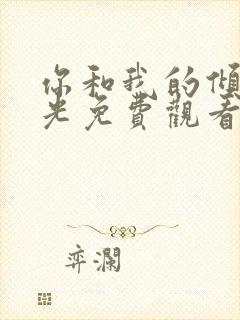 你和我的傾
光免費觀看
弈瀾